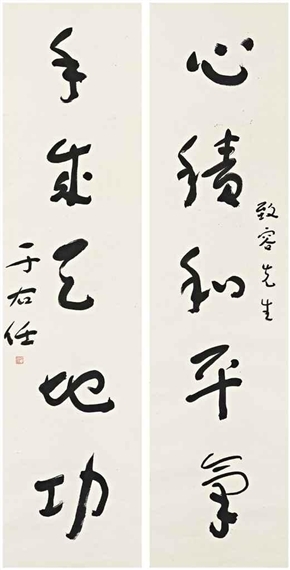 心積和平氣
致容先生
手成天地功
于右任